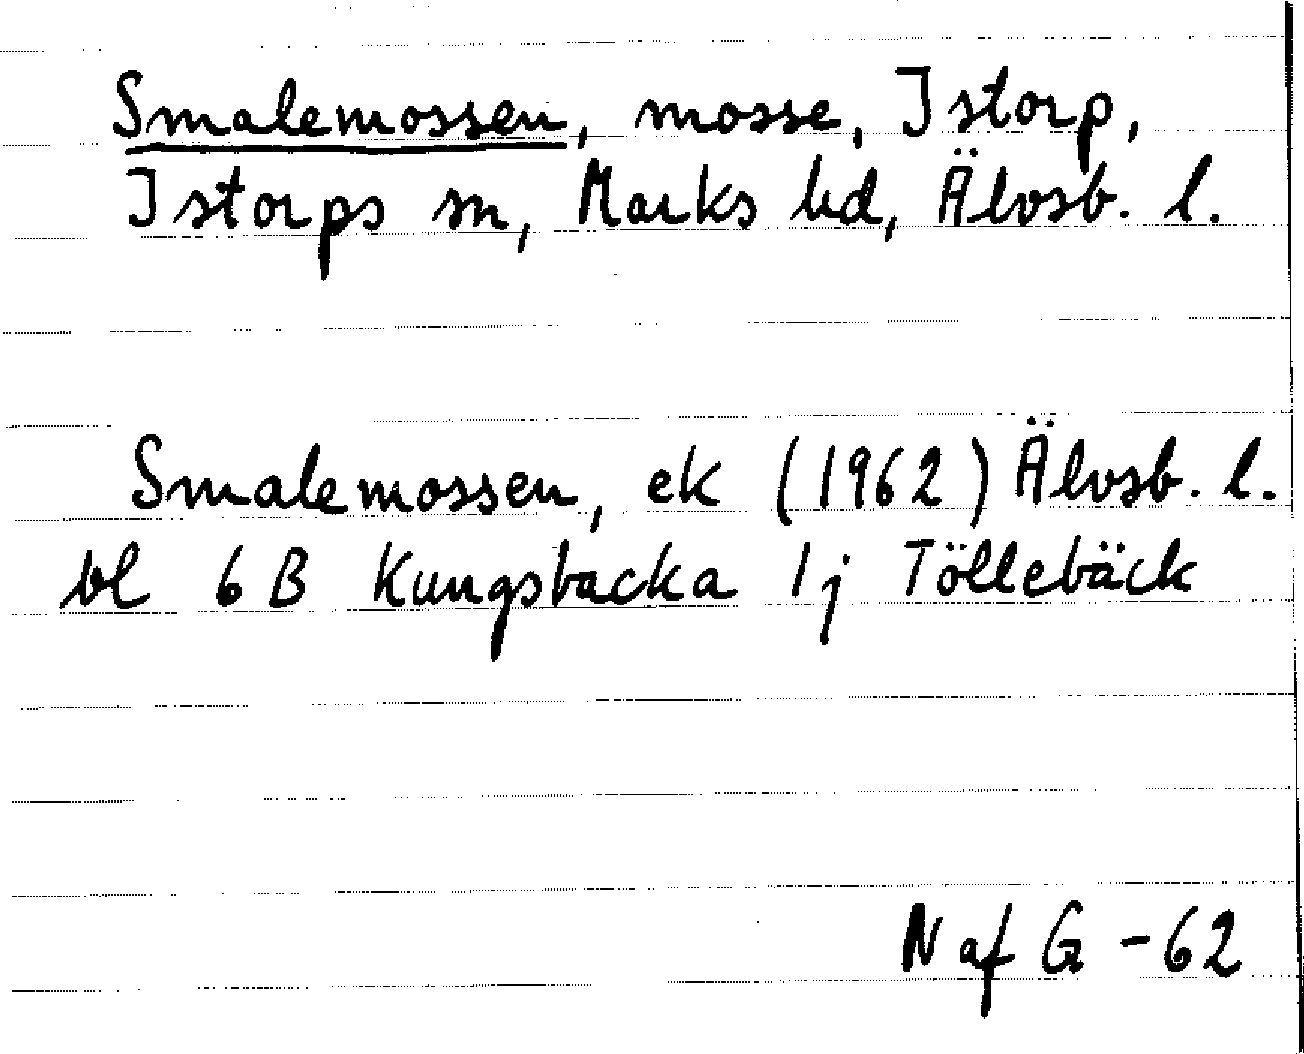 Smalemossen, mosse, Istorp,
Istorps sn, Marks hd, Älvsb. l.
Smalemossen, ek (1962) Älvsb. l.
bl 6 B Kungsbacka 1j Töllebäck
N af G -62